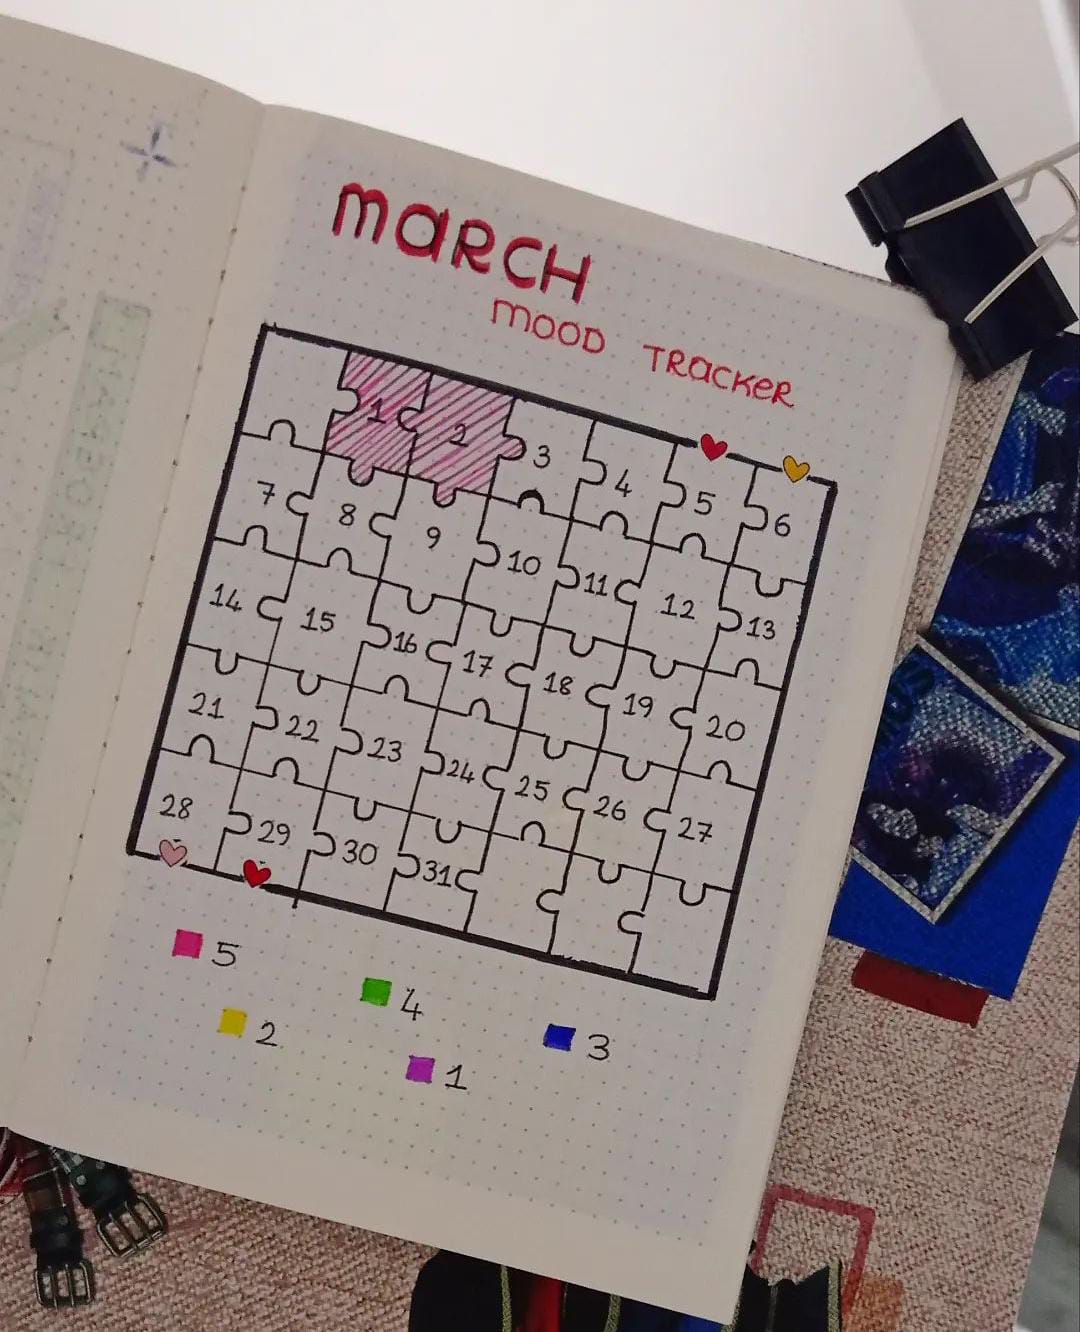 MARCH
MOOD TRACKER
1 2 3 4 5 6
7 8 9 10 11 12 13
14 15 16 17 18 19 20
21 22 23 24 25 26 27
28 29 30 31
5 4 3
2 1